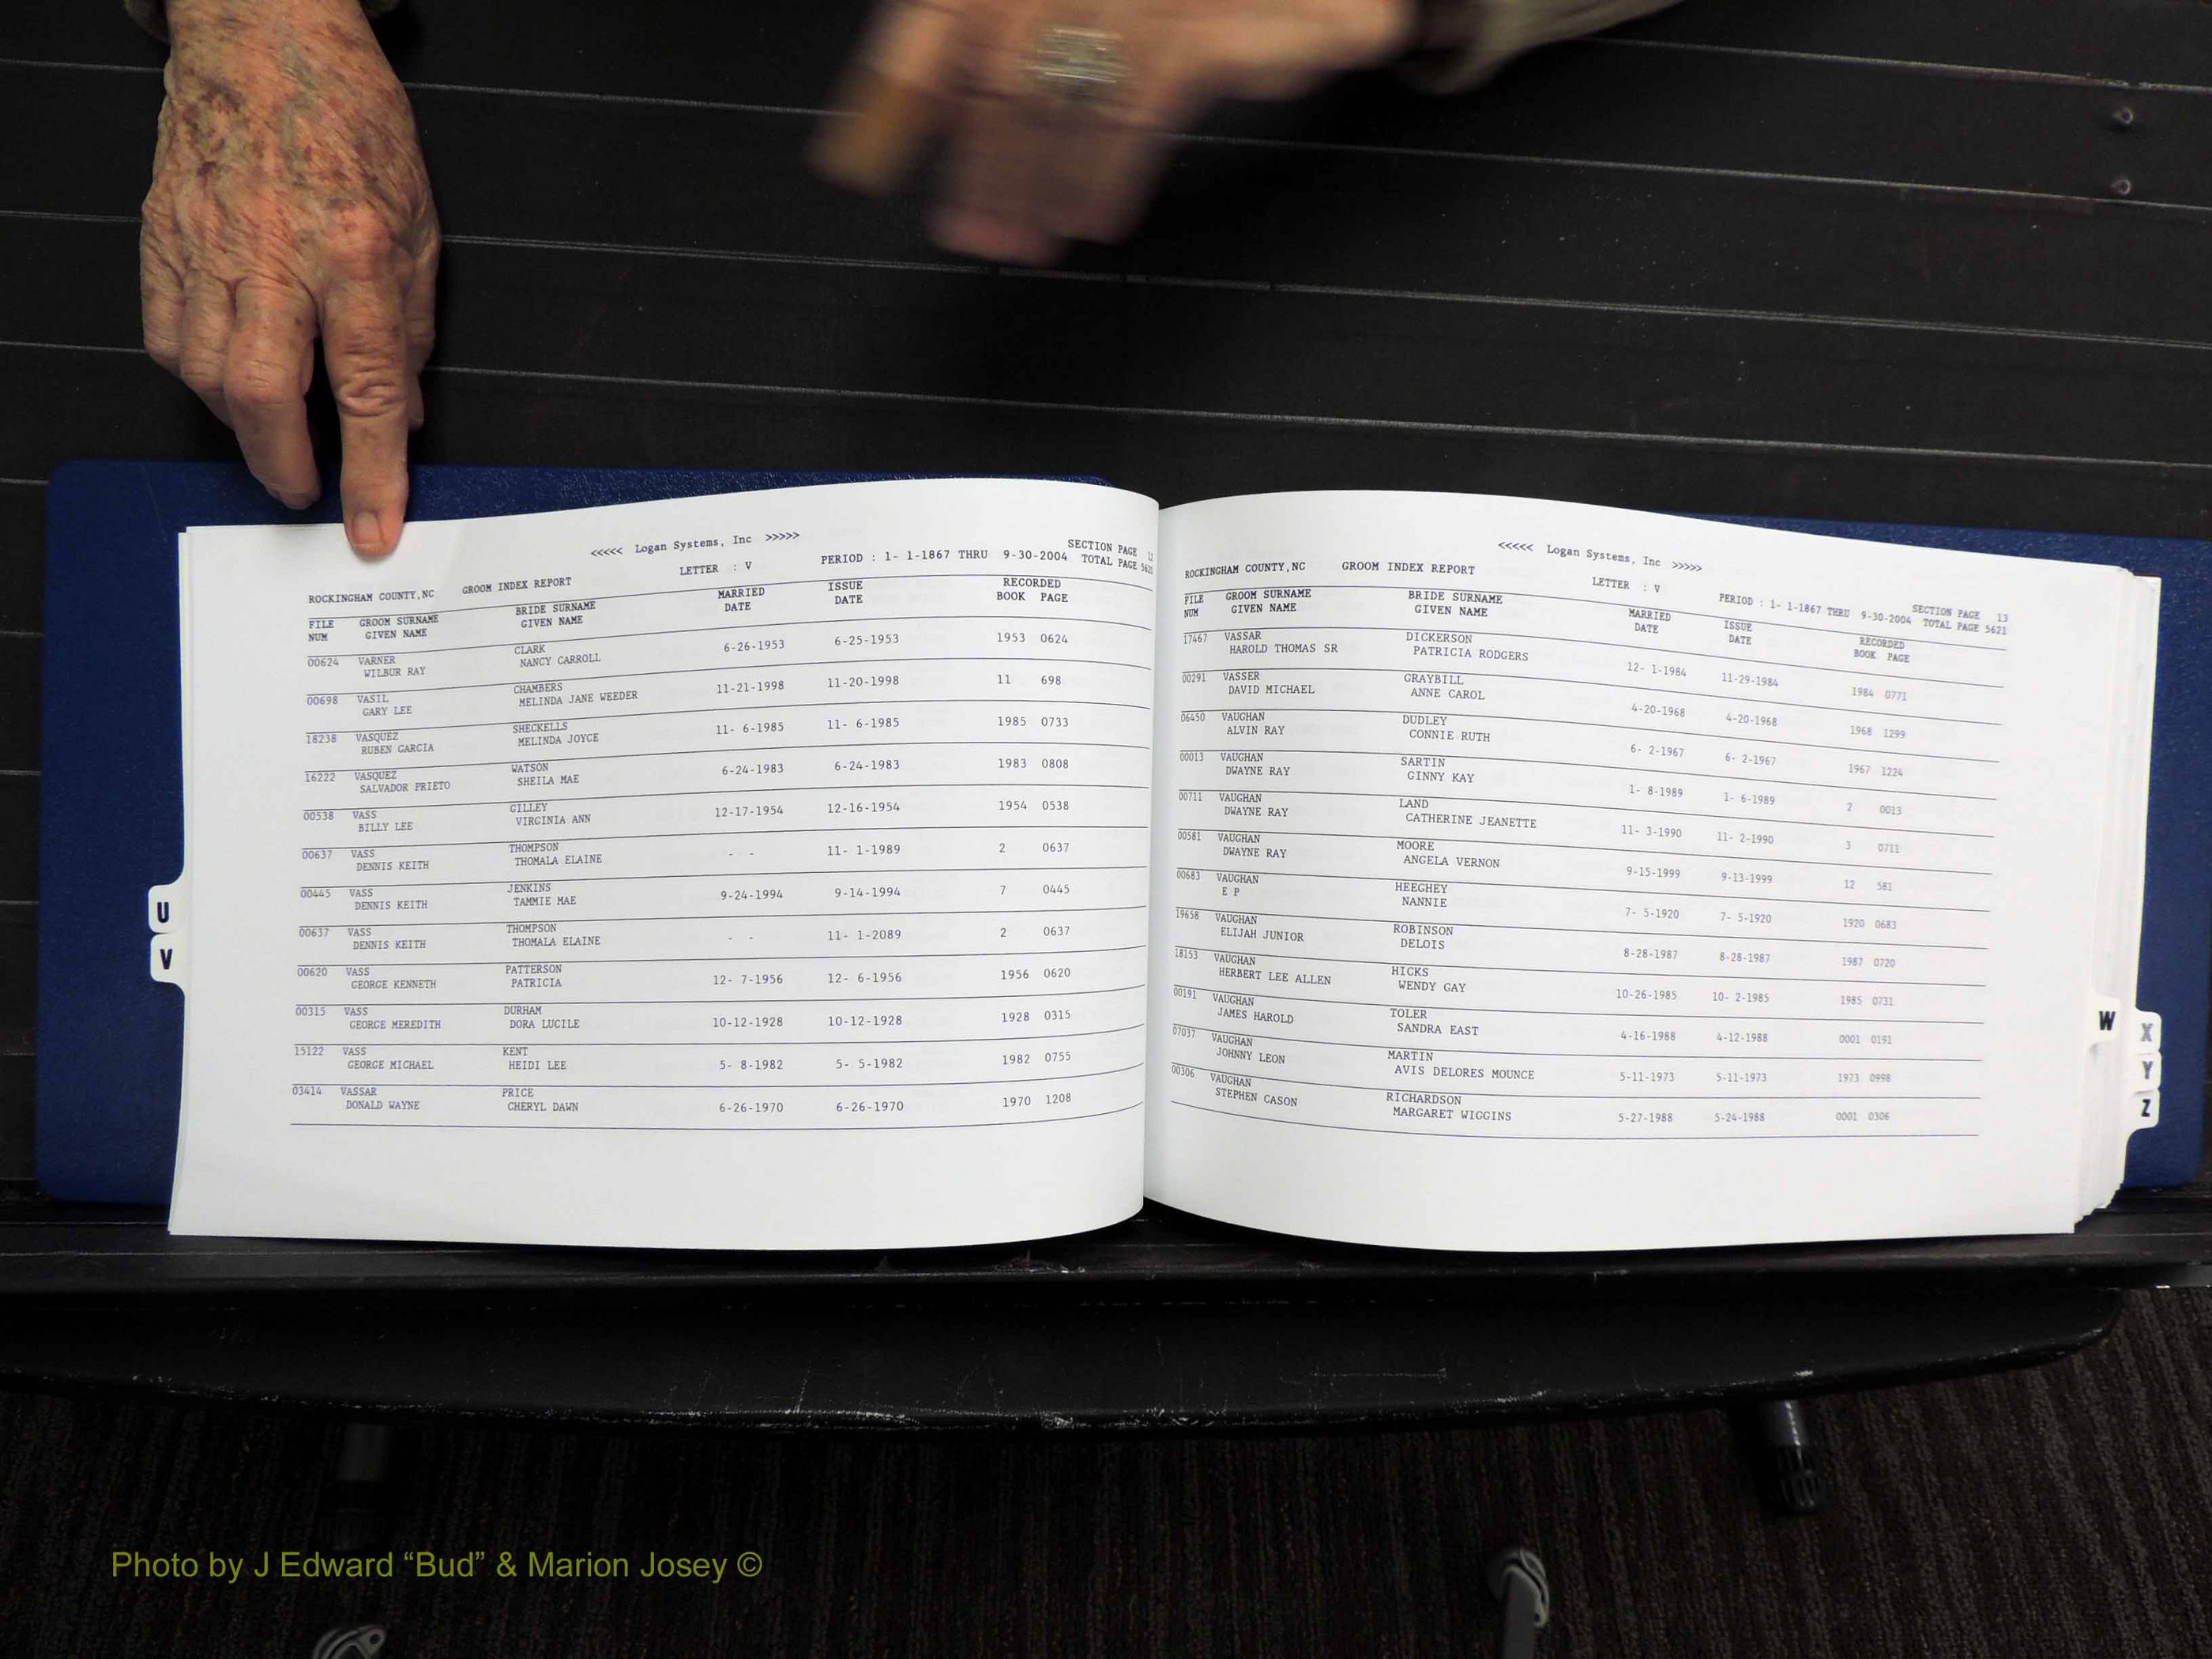 <<<<< Logan Systems, Inc >>>>>
SECTION PAGE
ROCKINGHAM COUNTY,NC GROOM INDEX REPORT LETTER : V PERIOD : 1- 1-1867 THRU 9-30-2004 TOTAL PAGE
FILE GROOM SURNAME BRIDE SURNAME MARRIED ISSUE RECORDED
NUM GIVEN NAME GIVEN NAME DATE DATE BOOK PAGE
00624 VARNER CLARK 6-26-1953 6-25-1953 1953 0624
WILBUR RAY NANCY CARROLL
00698 VASIL CHAMBERS 11-21-1998 11-20-1998 11 698
GARY LEE MELINDA JANE WEEDER
18238 VASQUEZ SHECKELLS 11- 6-1985 11- 6-1985 1985 0733
RUBEN GARCIA MELINDA JOYCE
16222 VASQUEZ WATSON 6-24-1983 6-24-1983 1983 0808
SALVADOR PRIETO SHEILA MAE
00538 VASS GILLEY 12-17-1954 12-16-1954 1954 0538
BILLY LEE VIRGINIA ANN
00637 VASS THOMPSON - - 11- 1-1989 2 0637
DENNIS KEITH THOMALA ELAINE
00445 VASS JENKINS 9-24-1994 9-14-1994 7 0445
DENNIS KEITH TAMMIE MAE
00637 VASS THOMPSON - - 11- 1-2089 2 0637
DENNIS KEITH THOMALA ELAINE
00620 VASS PATTERSON 12- 7-1956 12- 6-1956 1956 0620
GEORGE KENNETH PATRICIA
00315 VASS DURHAM 10-12-1928 10-12-1928 1928 0315
GEORGE MEREDITH DORA LUCILE
15122 VASS KENT 5- 8-1982 5- 5-1982 1982 0755
GEORGE MICHAEL HEIDI LEE
03414 VASSAR PRICE 6-26-1970 6-26-1970 1970 1208
DONALD WAYNE CHERYL DAWN
U
V
<<<<< Logan Systems, Inc >>>>>
SECTION PAGE 13
ROCKINGHAM COUNTY,NC GROOM INDEX REPORT LETTER : V PERIOD : 1- 1-1867 THRU 9-30-2004 TOTAL PAGE 5621
FILE GROOM SURNAME BRIDE SURNAME MARRIED ISSUE RECORDED
NUM GIVEN NAME GIVEN NAME DATE DATE BOOK PAGE
17467 VASSAR DICKERSON 12- 1-1984 11-29-1984 1984 0771
HAROLD THOMAS SR PATRICIA RODGERS
00291 VASSER GRAYBILL 4-20-1968 4-20-1968 1968 1299
DAVID MICHAEL ANNE CAROL
06450 VAUGHAN DUDLEY 6- 2-1967 6- 2-1967 1967 1224
ALVIN RAY CONNIE RUTH
00013 VAUGHAN SARTIN 1- 8-1989 1- 6-1989 2 0013
DWAYNE RAY GINNY KAY
00711 VAUGHAN LAND 11- 3-1990 11- 2-1990 3 0711
DWAYNE RAY CATHERINE JEANETTE
00581 VAUGHAN MOORE 9-15-1999 9-13-1999 12 581
DWAYNE RAY ANGELA VERNON
00683 VAUGHAN HEEGHEY 7- 5-1920 7- 5-1920 1920 0683
E P NANNIE
19658 VAUGHAN ROBINSON 8-28-1987 8-28-1987 1987 0720
ELIJAH JUNIOR DELOIS
18153 VAUGHAN HICKS 10-26-1985 10- 2-1985 1985 0731
HERBERT LEE ALLEN WENDY GAY
00191 VAUGHAN TOLER 4-16-1988 4-12-1988 0001 0191
JAMES HAROLD SANDRA EAST
07037 VAUGHAN MARTIN 5-11-1973 5-11-1973 1973 0998
JOHNNY LEON AVIS DELORES MOUNCE
00306 VAUGHAN RICHARDSON 5-27-1988 5-24-1988 0001 0306
STEPHEN CASON MARGARET WIGGINS
W
X
Y
Z
Photo by J Edward “Bud” & Marion Josey ©